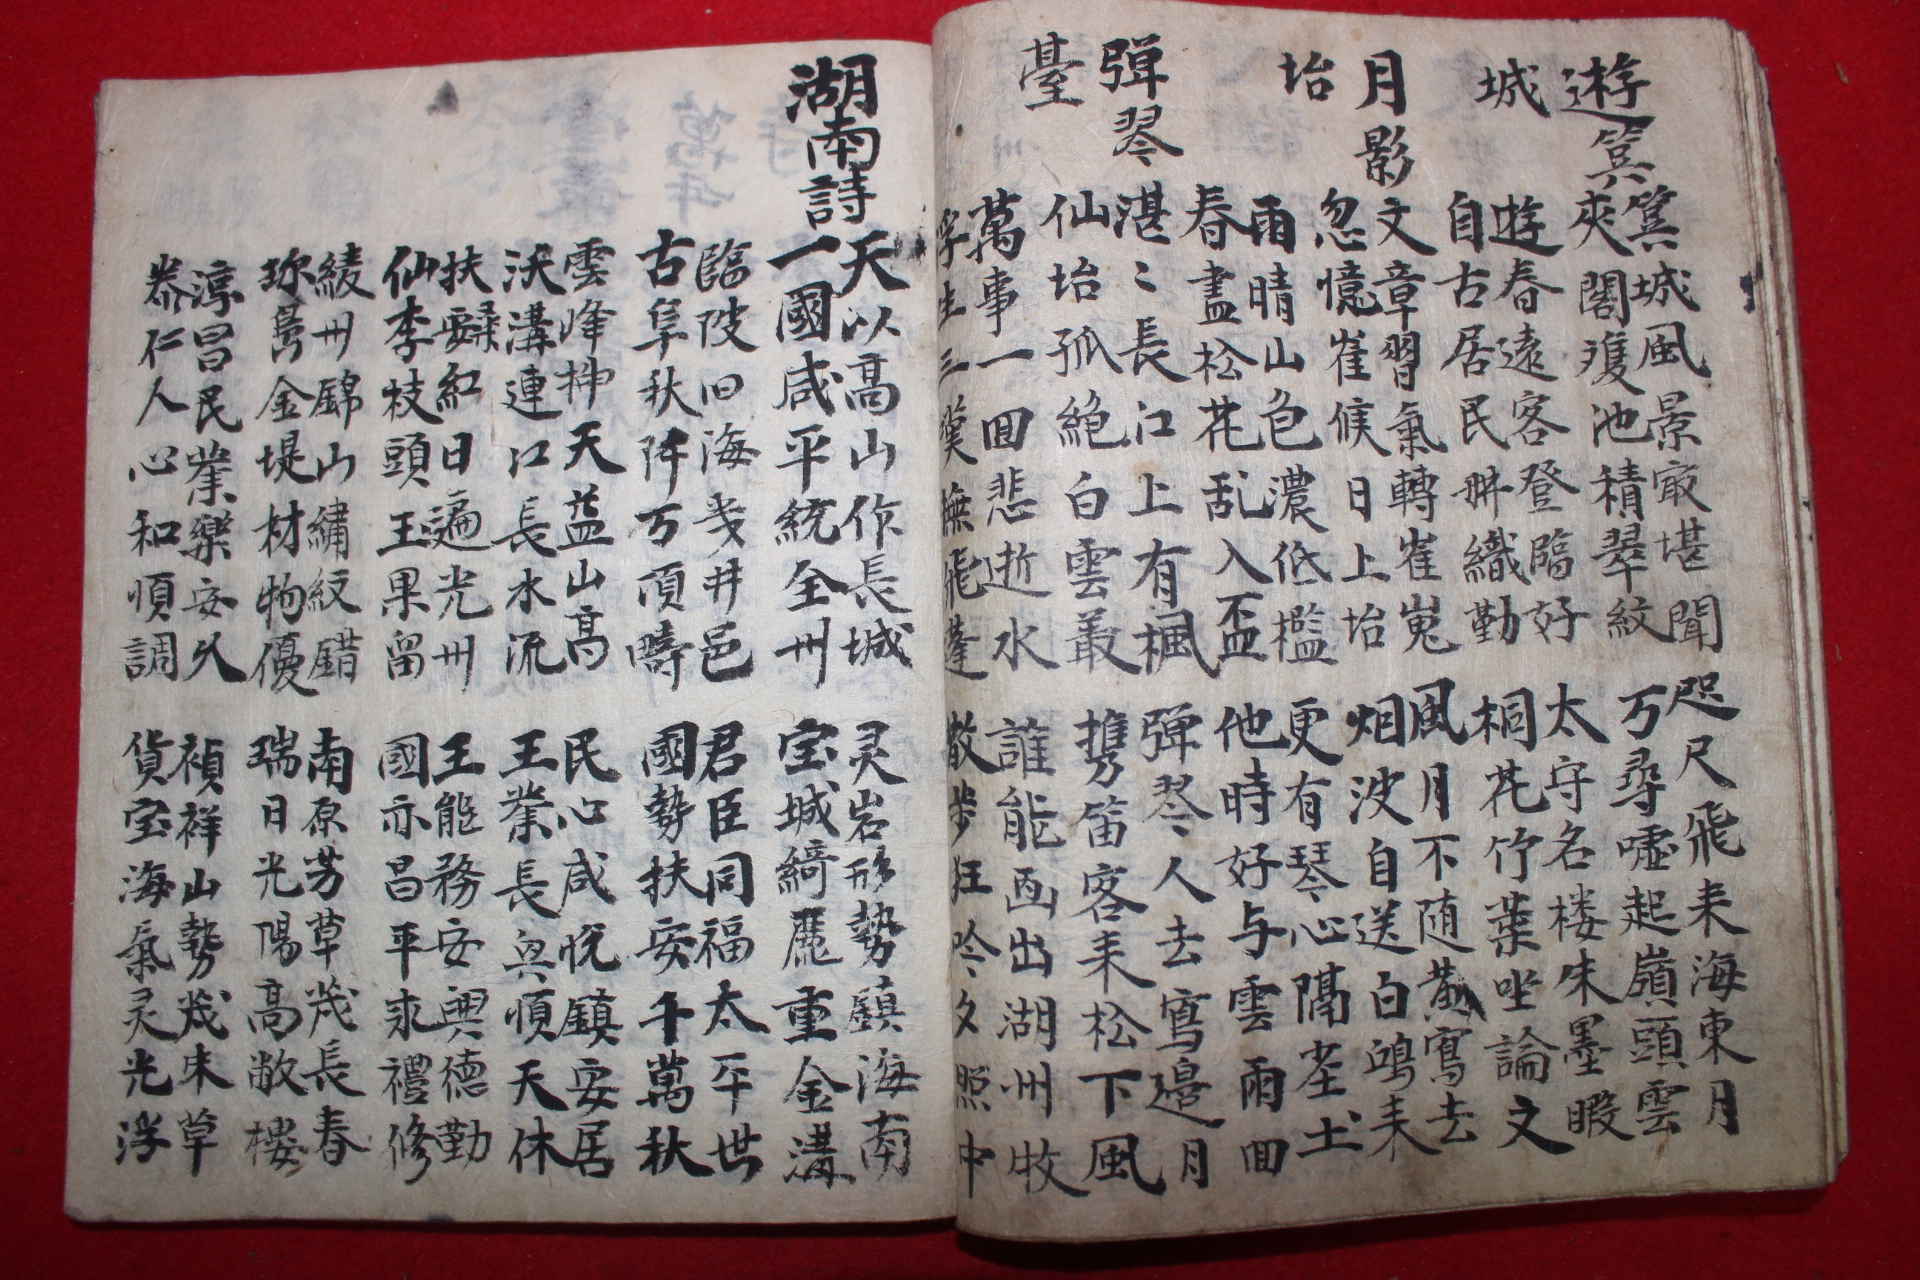 遊箕城
箕城風景最堪聞 咫尺飛来海東月
夾閣澓池積翠紋 万尋嘘起嶺頭雲
遊春遠客登臨好 太守名楼朱墨暇
自古居民耕織勤 桐花竹葉坐論文
月影坮
文章習氣轉崔嵬 風月不随黃寫去
忽憶崔候日上坮 烟波自送白鴻来
雨晴山色濃低檻 更有琴心隔土
春盡松花乱入盃 他時好与雲雨回
弾琴臺
湛〻長江上有楓 弾琴人去寫邉月
仙坮孤絶白雲叢 携笛客来松下風
萬事一回悲逝水 誰能画出湖州牧
浮生三嘆撫飛蓬 散步狂吟夕照中
湖南詩
天以高山作長城 灵岩形勢鎮海南
一國咸平統全州 宝城綺麗重金溝
臨陂曰海幾井邑 君臣同福太平世
古阜秋阡万頃疇 國勢扶安千萬秋
雲峰挿天益山高 民心咸悅鎮安居
沃溝連江長水流 王業長興順天休
扶桑紅日遍光州 王能務安興德勤
仙李枝頭王果留 國亦昌平求禮修
綾州錦山繡紋錯 南原芳草茂長春
珍島金堤材物優 瑞日光陽高敞樓
淳昌民業樂安久 禎祥山勢茂朱草
泰仁人心和順調 貨宝海氣灵光浮